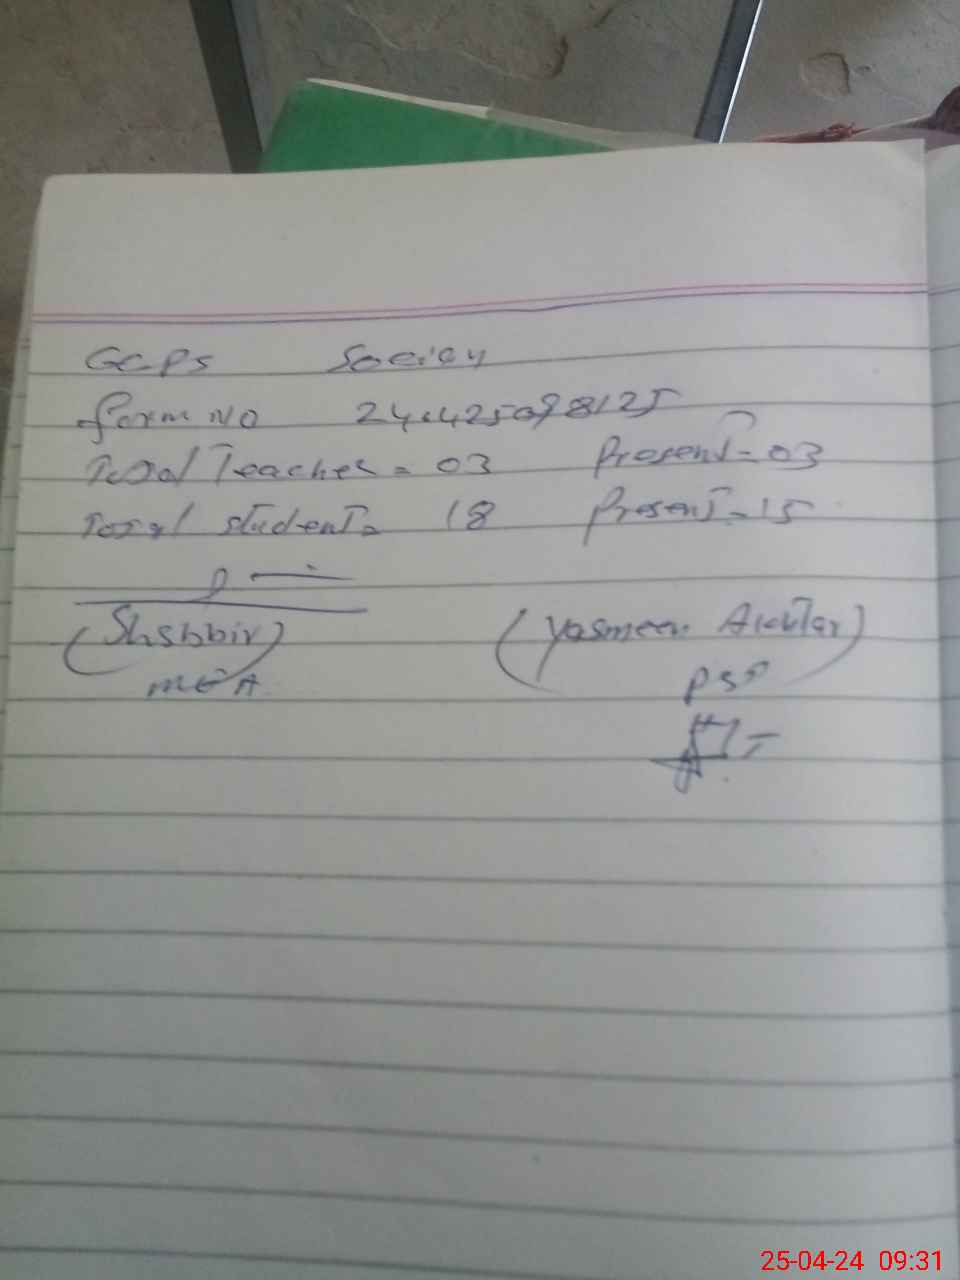 GCPS
form No 240425098125
Total Teacher = 03 Present = 03
Total student = 18 Present = 15
(Shabbir) (Yasmeen Akhtar)
MEA
25-04-24 09:31